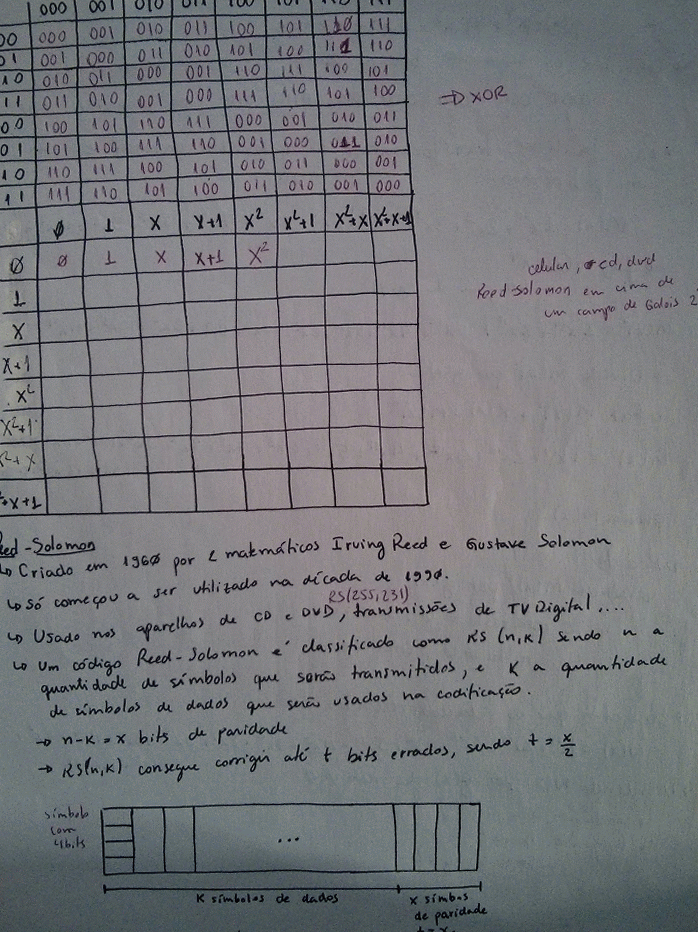 000 001 010 011 100 101 110 111
00 000 001 010 011 100 101 110 111
01 001 000 011 010 101 100 111 110
10 010 011 000 001 110 111 100 101
11 011 010 001 000 111 110 101 100
⇒ XOR
00 100 101 110 111 000 001 010 011
01 101 100 111 110 001 000 011 010
10 110 111 100 101 010 011 000 001
11 111 110 101 100 011 010 001 000
Ø 1 X X+1 X² X²+1 X²+X X²+X+1
Ø Ø 1 X X+1 X²
1
X
X+1
X²
X²+1
X²+X
²+X+1
celular, cd, dvd
Reed-Solomon em cima de
um campo de Galois 2
Reed-Solomon
↳ Criado em 196Ø por 2 matemáticos Irving Reed e Gustave Solomon
↳ Só começou a ser utilizado na década de 199Ø.
RS(255,231)
↳ Usado nos aparelhos de CD e DVD, transmissões de TV Digital,...
↳ Um código Reed-Solomon é classificado como RS (n,k) sendo n a
quantidade de símbolos que serão transmitidos, e K a quantidade
de símbolos de dados que serão usados na codificação.
→ n-k = x bits de paridade
→ RS(n,k) consegue corrigir até t bits errados, sendo t = x/2
símbolo
com
4bits
...
K símbolos de dados
x símbos
de paridade